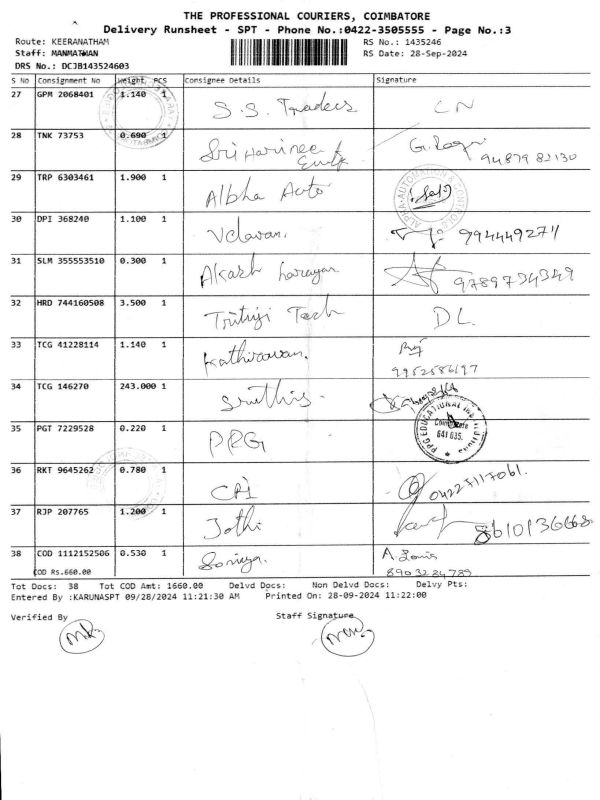 THE PROFESSIONAL COURIERS, COIMBATORE
Delivery Runsheet - SPT - Phone No.:0422-3505555 - Page No.:3
Route: KEERANATHAM RS No.: 1435246
Staff: MANMATHAN RS Date: 28-Sep-2024
DRS No.: DCJB143524603
S No Consignment No Weight PCS Consignee Details Signature
27 GPM 2068401 1.140 1 S.S. Traders CN
28 TNK 73753 0.690 1 Sri Harinee G. 94879 82130
29 TRP 6303461 1.900 1 Albha Auto ALPHA-AUTOMATION & CONTROLS
30 DPI 368240 1.100 1 Velavan. 9944449271
31 SLM 355553510 0.300 1 Akash 9789734349
32 HRD 744160508 3.500 1 Tech DL.
33 TCG 41228114 1.140 1 Kathiravan.
9952586197
34 TCG 146270 243.000 1 Sruthis.
35 PGT 7229528 0.220 1 PRG PPG EDUCATIONAL Coimbatore 641 035.
36 RKT 9645262 0.780 1 04227117061.
37 RJP 207765 1.200 1 Jothi 8610136668
38 COD 1112152506 0.530 1 Soniya. A. Louis
COD Rs.660.00 8903284789
Tot Docs: 38 Tot COD Amt: 1660.00 Delvd Docs: Non Delvd Docs: Delvy Pts:
Entered By :KARUNASPT 09/28/2024 11:21:30 AM Printed On: 28-09-2024 11:22:00
Verified By Staff Signature